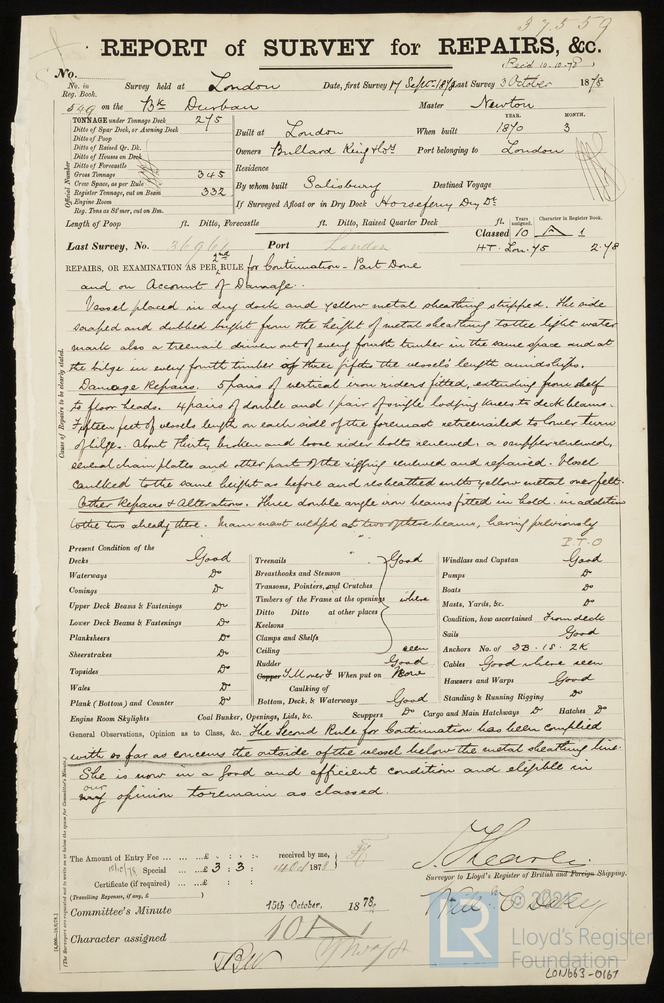 37559
REPORT of SURVEY for REPAIRS, &c.
(Recd 10.10.78)
No.
No. in Reg. Book. Survey held at London Date, first Survey 17 Sept. 1878 Last Survey 3 October 1878
549 on the Bk Durban Master Newton
TONNAGE under Tonnage Deck 275
Ditto of Spar Deck, or Awning Deck
Ditto of Poop
Ditto of Raised Qr. Dk.
Ditto of Houses on Deck
Ditto of Forecastle
Gross Tonnage 345
Crew Space, as per Rule
Register Tonnage, cut on Beam 332
Engine Room
Reg. Tons as St'mer, cut on Bm.
Official Number
YEAR. MONTH.
Built at London When built 1870 3
Owners Bullard King & Co. Port belonging to London
Residence
By whom built Salisbury Destined Voyage
If Surveyed Afloat or in Dry Dock Horseferry Dry Dk
Length of Poop ft. Ditto, Forecastle ft. Ditto, Raised Quarter Deck ft.
Years assigned. Character in Register Book.
Classed 10 A 1
Last Survey, No. 36964 Port London HT. Lon. 75 2.78
REPAIRS, OR EXAMINATION AS PER 2nd RULE for Continuation - Part Done
and on Account of Damage.
Vessel placed in dry dock and yellow metal sheathing stripped. The side
scraped and dubbed bright from the height of metal sheathing to the light water
mark also a treenail driven out of every fourth timber in the same space and at
the bilge in every fourth timber of three fifths the vessel's length amidships.
Damage Repairs. 5 pairs of vertical iron riders fitted, extending from shelf
to floor heads. 4 pairs of double and 1 pair of single lodging knees to deck beams.
Fifteen feet of vessels length on each side of the foremast retreenailed to lower turn
of bilge. About thirty broken and loose rider bolts renewed, a scupper renewed,
several chain plates and other part of the rigging renewed and repaired. Vessel
caulked to the same height as before and resheathed with yellow metal over felt.
Other Repairs & Alterations. Three double angle iron beams fitted in hold in addition
to the two already there. Main mast wedged at two of these beams, having previously
P.T.O
Cause of Repairs to be clearly stated.
Present Condition of the
Decks Good
Waterways Do
Comings Do
Upper Deck Beams & Fastenings Do
Lower Deck Beams & Fastenings Do
Planksheers Do
Sheerstrakes Do
Topsides Do
Wales Do
Plank (Bottom) and Counter Do
Engine Room Skylights
Treenails Good
Breasthooks and Stemson
Transoms, Pointers, and Crutches
Timbers of the Frame at the openings where
Ditto Ditto at other places
Keelsons
Clamps and Shelfs
Ceiling seen
Rudder Good
Copper Y.M over F When put on Now
Caulking of
Bottom, Deck, & Waterways Good
Coal Bunker, Openings, Lids, &c. Scuppers Do
Windlass and Capstan Good
Pumps Do
Boats Do
Masts, Yards, &c. Do
Condition, how ascertained From deck
Sails Good
Anchors No. of 3B. 1S. 2K
Cables Good where seen
Hawsers and Warps Good
Standing & Running Rigging Do
Cargo and Main Hatchways Do Hatches Do
General Observations, Opinion as to Class, &c. The Second Rule for Continuation has been complied
with as far as concerns the outside of the vessel below the metal sheathing line.
She is now in a good and efficient condition and eligible in
our opinion to remain as classed.
The Amount of Entry Fee £ : : received by me,
Special £ 3 : 3 : 187
Certificate (if required) £ : :
(Travelling Expenses, if any, £ )
Surveyor to Lloyd's Register of British and Foreign Shipping.
Committee's Minute 15th October, 1878,
Character assigned 10 A 1
© 2021
LR
Lloyd's Register
Foundation
LON663-0167